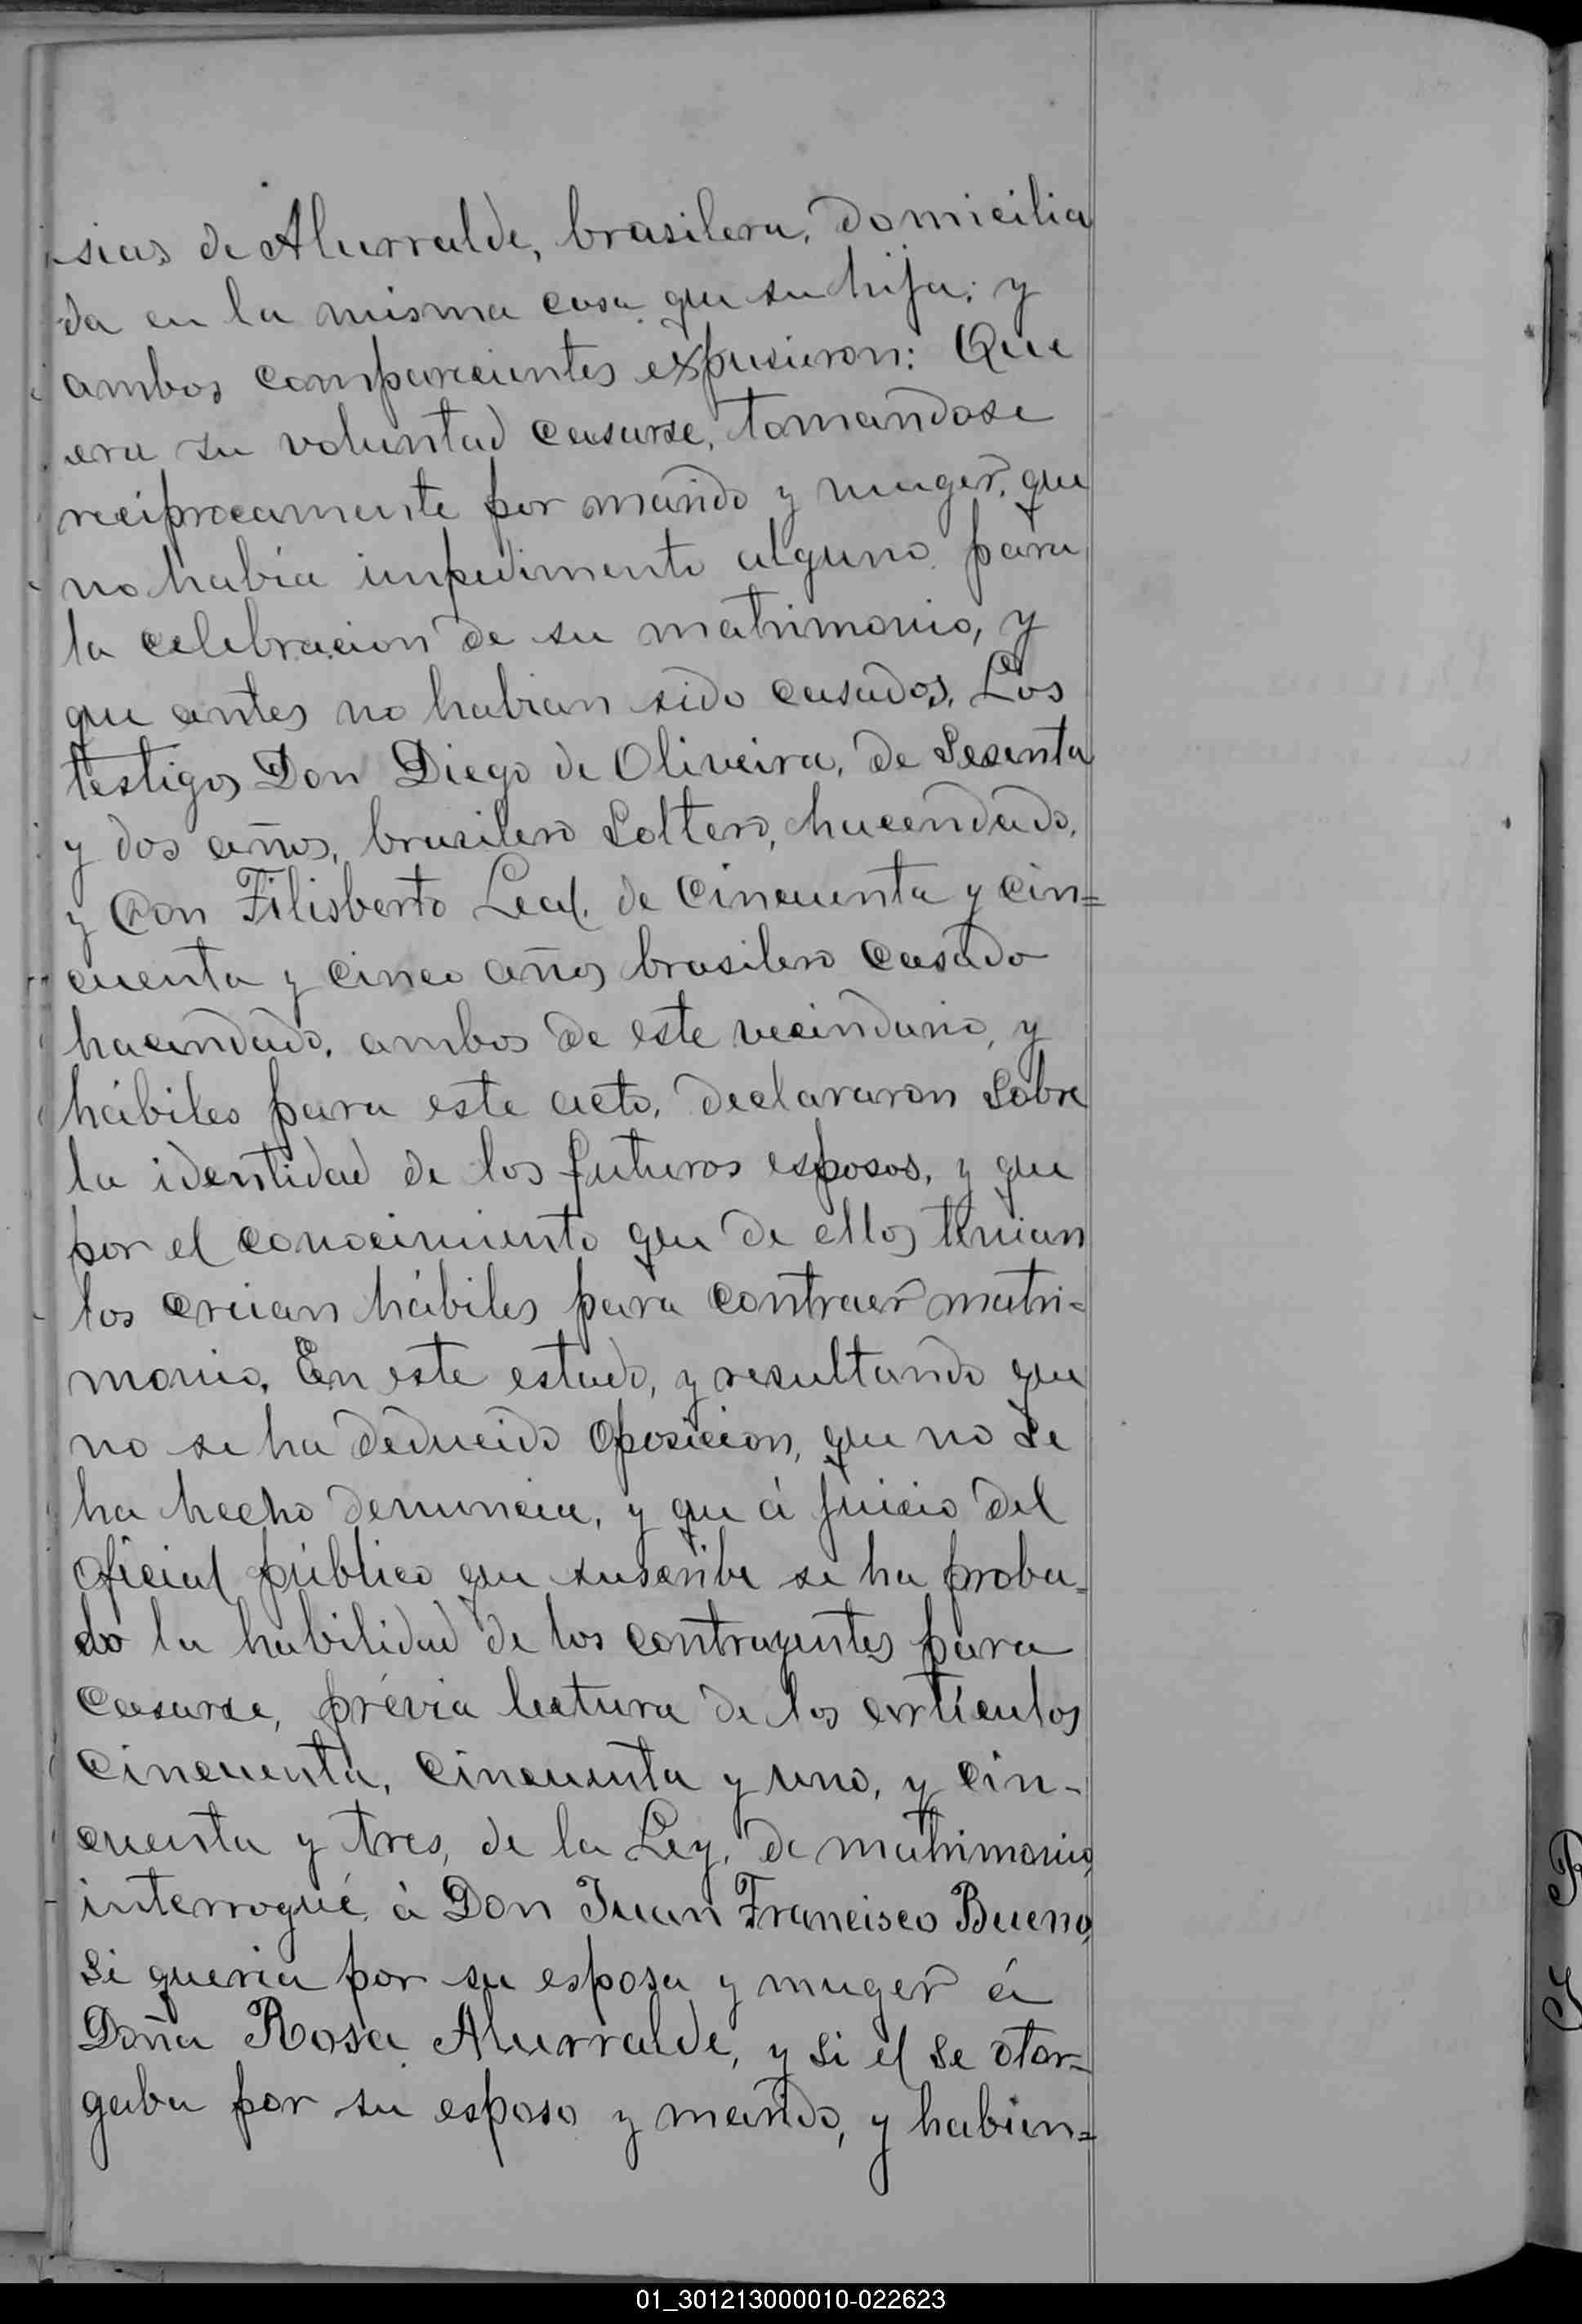 sias de Alurralde, brasilera, domicilia
da en la misma casa que su hija; y
ambos comparecientes expusieron: Que
era su voluntad casarse, tomandose
reciprocamente por marido y muger, que
no habia impedimento alguno para
la celebracion de su matrimonio, y
que antes no habian sido casados. Los
testigos Don Diego de Oliveira, de Sesenta
y dos años, brasilero Soltero, hacendado,
y Don Filisberto Leal, de Cincuenta y cin=
cuenta y cinco años brasilero casado
hacendado, ambos de este vecindario, y
hábiles para este acto, declararon Sobre
la identidad de los futuros esposos, y que
por el conocimiento que de ellos tenian
los creian hábiles para contraer matri-
monio. En este estado, y resultando que
no se ha deducido oposicion, que no se
ha hecho denuncia, y que á juicio del
oficial público que suscribe se ha proba=
do la habilidad de los contrayentes para
Casarse, prévia lectura de los artículos
Cincuenta, Cincuenta y uno, y cin-
cuenta y tres, de la Ley, de matrimonio,
interrogué á Don Juan Francisco Bueno,
si queria por su esposa y muger á
Doña Rosa Alurralde, y si el se otor-
gaba por su esposo y marido, y habien=
01_301213000010-022623